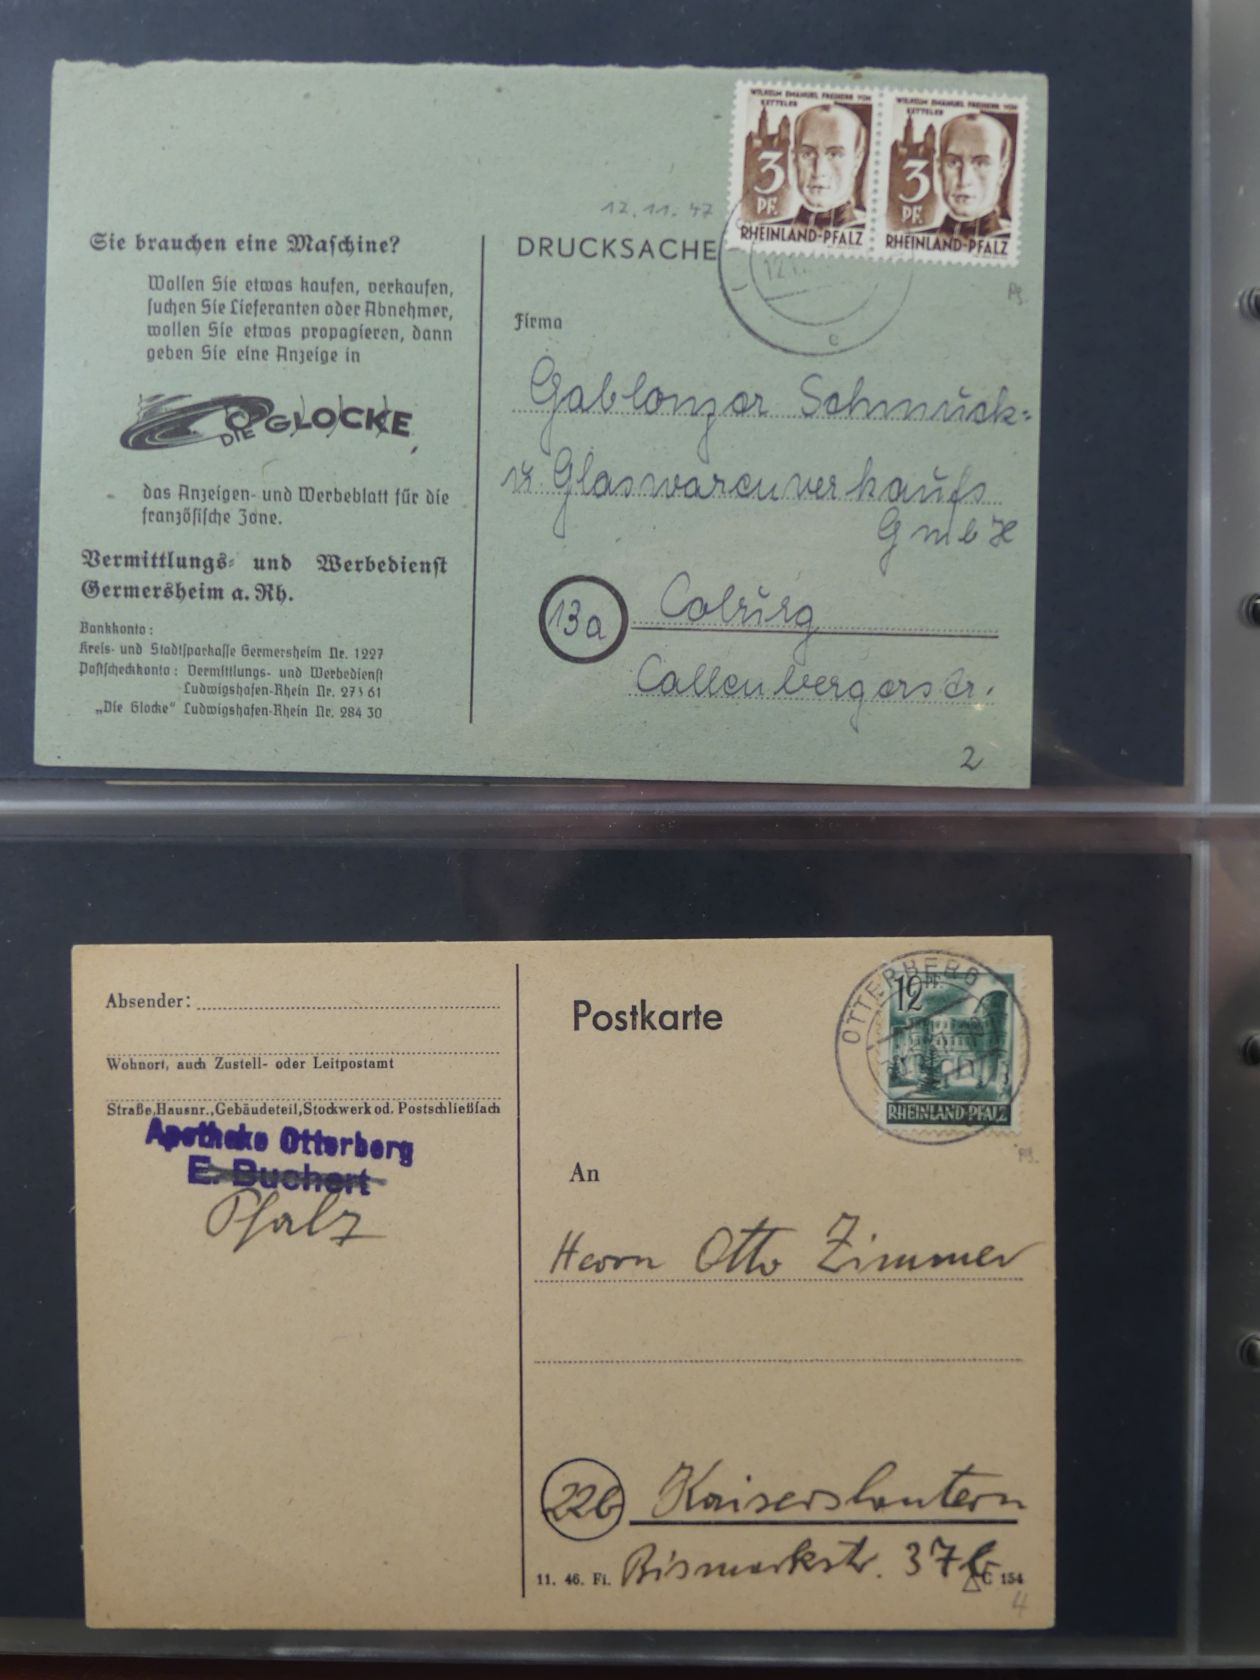 Sie brauchen eine Maschine?
Wollen Sie etwas kaufen, verkaufen,
suchen Sie Lieferanten oder Abnehmer,
wollen Sie etwas propagieren, dann
geben Sie eine Anzeige in
DIE GLOCKE
das Anzeigen- und Werbeblatt für die
französische Zone.
Vermittlungs- und Werbedienst
Germersheim a. Rh.
Bankkonto:
Kreis- und Stadtsparkasse Germersheim Nr. 1227
Postscheckkonto: Vermittlungs- und Werbedienst
Ludwigshafen-Rhein Nr. 273 61
„Die Glocke" Ludwigshafen-Rhein Nr. 284 30
WILHELM EMANUEL FREIHERR VON
KETTELER
3
PF.
RHEINLAND-PFALZ
WILHELM EMANUEL FREIHERR VON
KETTELER
3
PF.
RHEINLAND-PFALZ
12.11.47
DRUCKSACHE
c
Firma
Gablonzer Schmuck-
u. Glaswarenverkaufs
GmbH
13a Coburg
Callenbergerstr.
2
Absender:
Wohnort, auch Zustell- oder Leitpostamt
Straße, Hausnr., Gebäudeteil, Stockwerk od. Postschließfach
Apotheke Otterberg
E. Buchert
Pfalz
Postkarte
OTTERBERG
12 PF.
RHEINLAND-PFALZ
An
Herrn Otto Zimmer
22b Kaiserslautern
Bismarkstr. 37
11. 46. Fi.
C 154
4